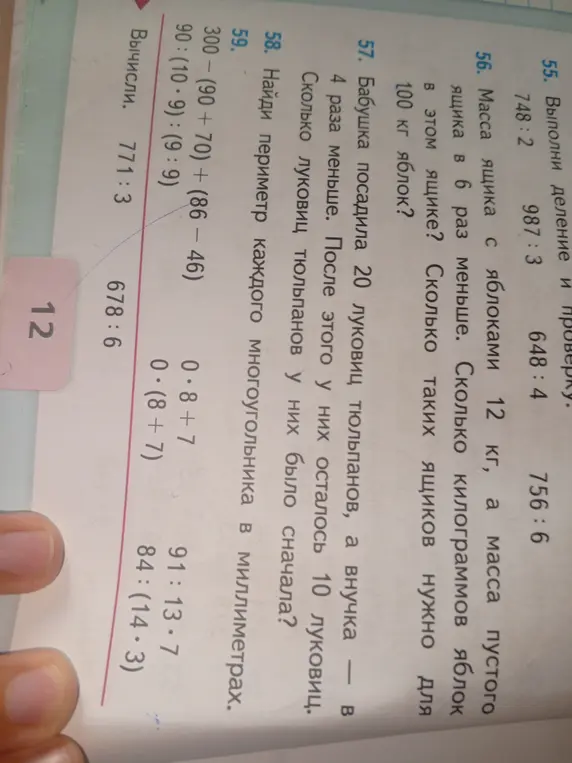 55. Выполни деление и проверку.
748 : 2 987 : 3 648 : 4 756 : 6
56. Масса ящика с яблоками 12 кг, а масса пустого
ящика в 6 раз меньше. Сколько килограммов яблок
в этом ящике? Сколько таких ящиков нужно для
100 кг яблок?
57. Бабушка посадила 20 луковиц тюльпанов, а внучка — в
4 раза меньше. После этого у них осталось 10 луковиц.
Сколько луковиц тюльпанов у них было сначала?
58. Найди периметр каждого многоугольника в миллиметрах.
59.
300 − (90 + 70) + (86 − 46) 0 · 8 + 7 91 : 13 · 7
90 : (10 · 9) : (9 : 9) 0 · (8 + 7) 84 : (14 · 3)
Вычисли. 771 : 3 678 : 6
12